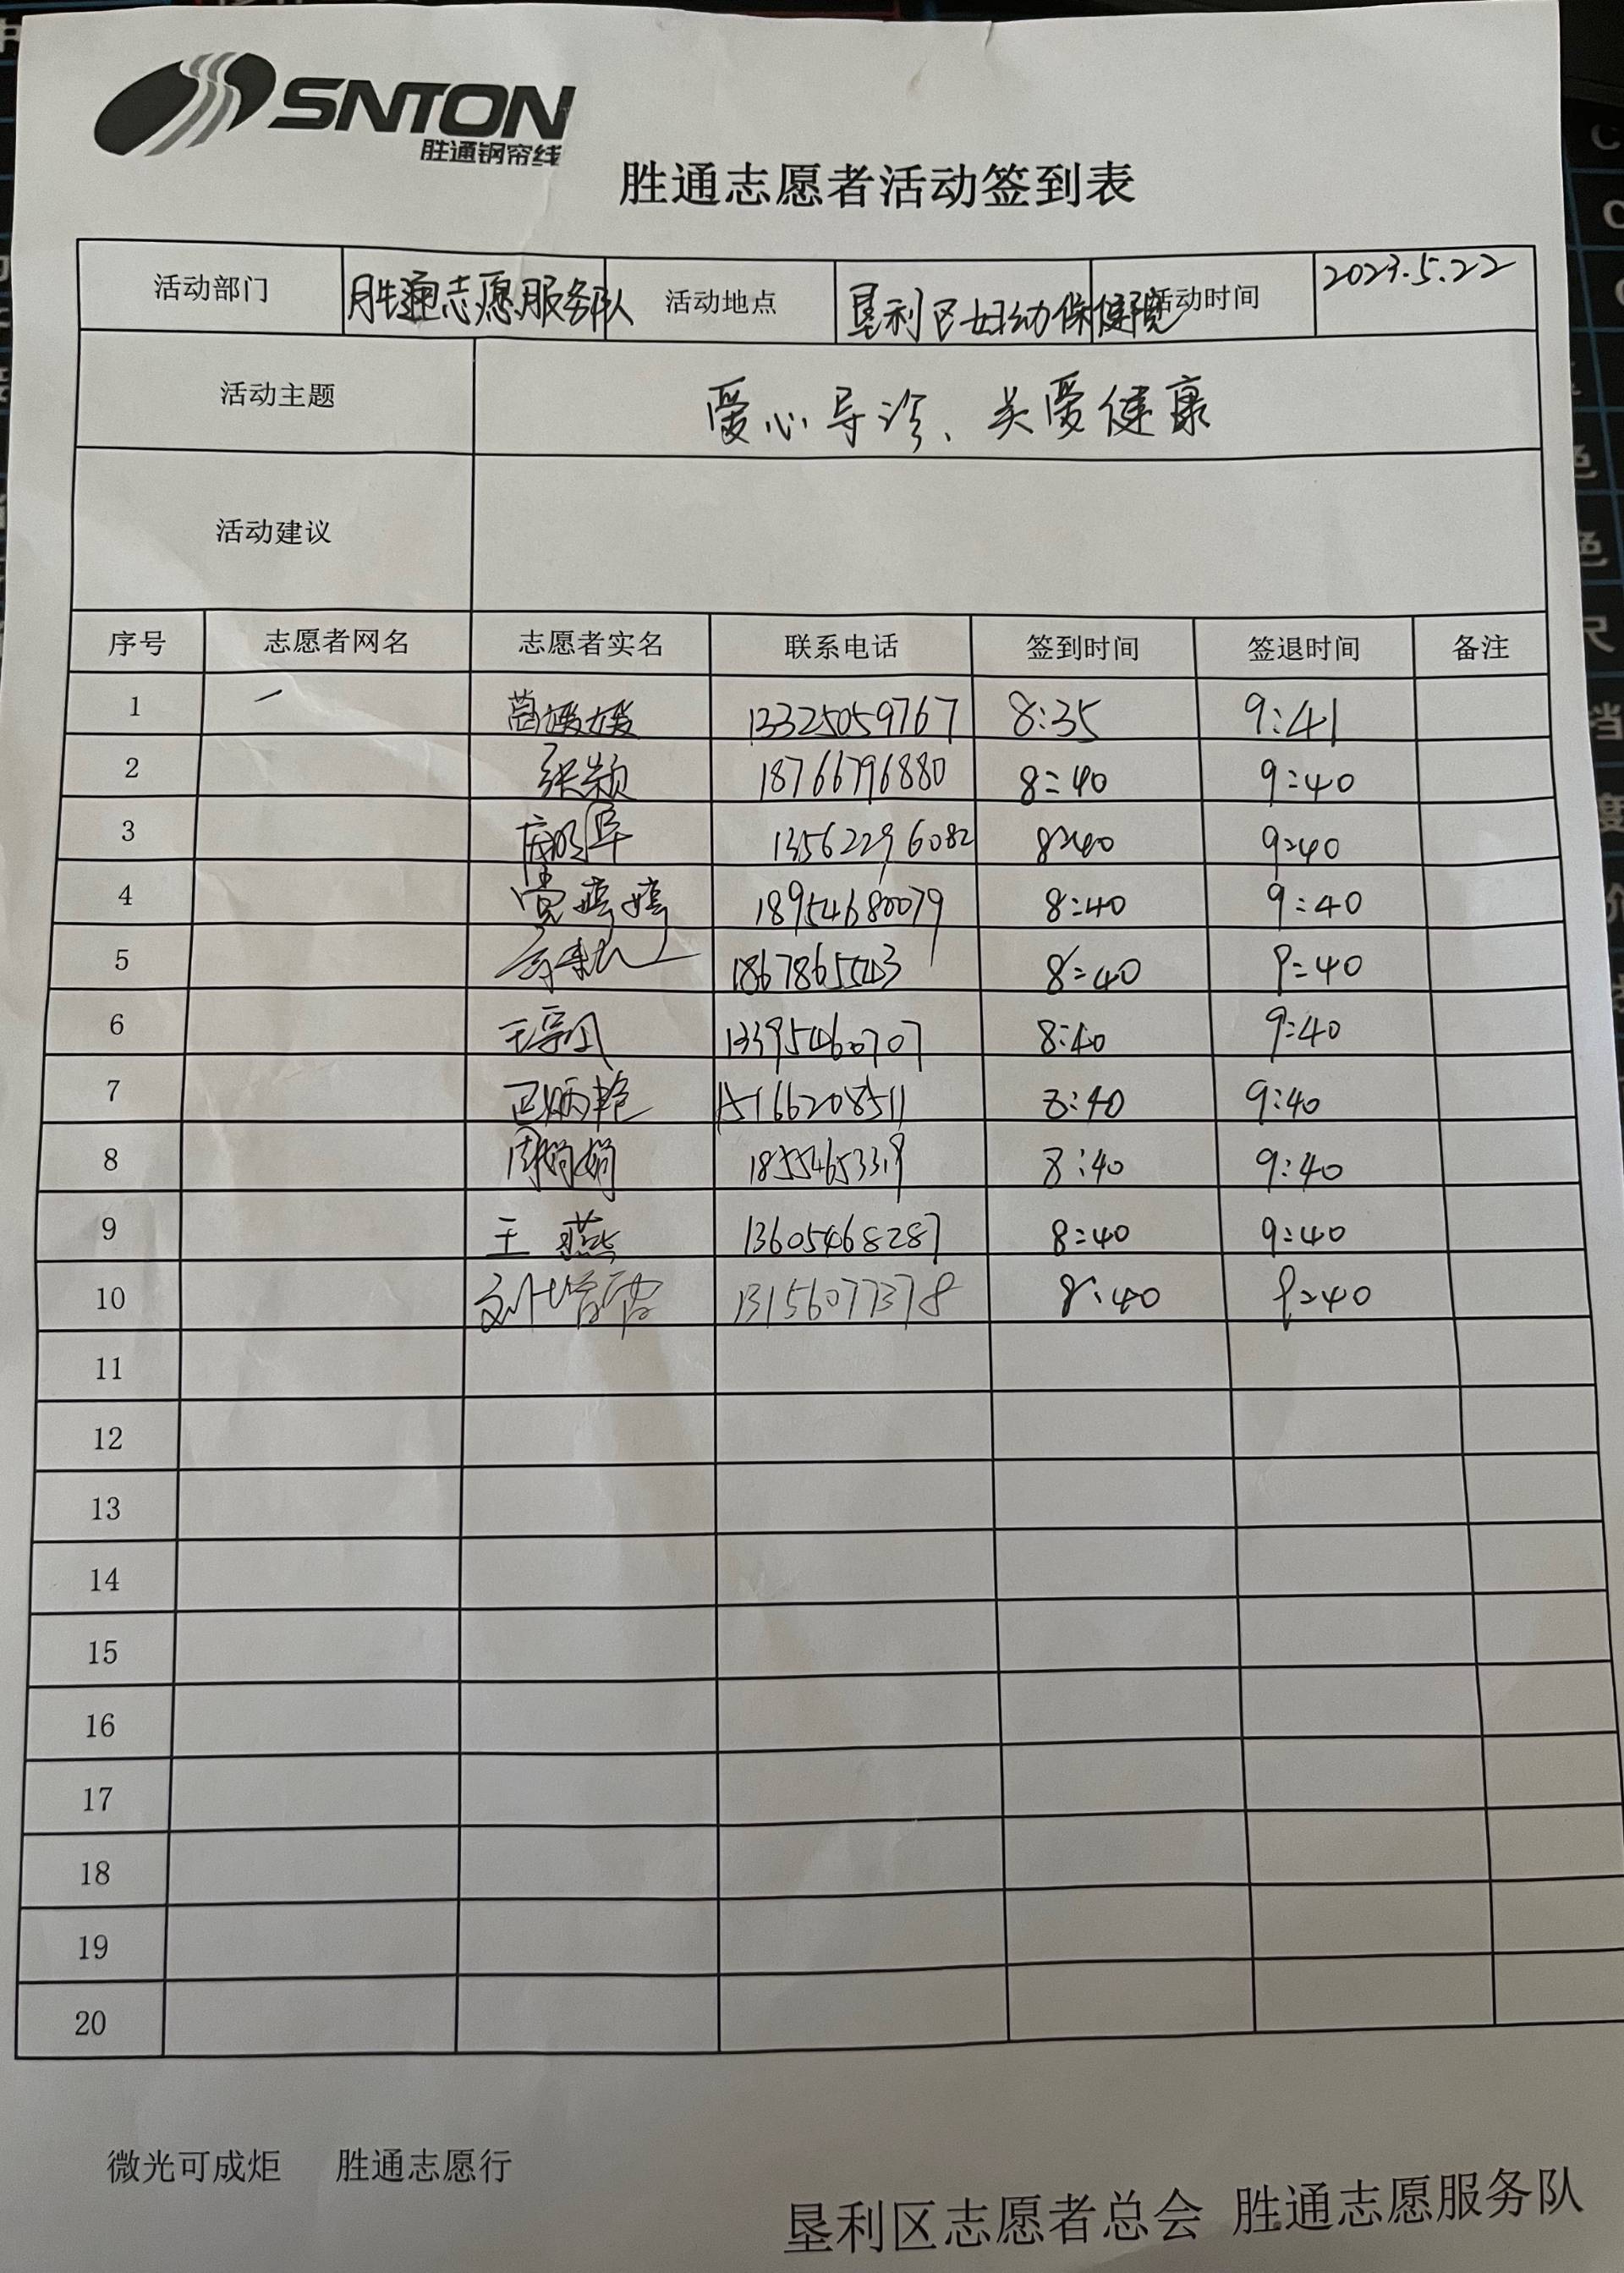 SNTON
胜通钢帘线
胜通志愿者活动签到表
活动部门 胜通志愿服务队 活动地点 垦利区妇幼保健院 活动时间 2023.5.22
活动主题 爱心导诊、关爱健康
活动建议
序号 志愿者网名 志愿者实名 联系电话 签到时间 签退时间 备注
1 13325059767 8:35 9:41
2 张颖 18766796880 8:40 9:40
3 13562296082 8:40 9:40
4 18954680079 8:40 9:40
5 8:40 9:40
6 13395460707 8:40 9:40
7 15166208511 8:40 9:40
8 周娟娟 8:40 9:40
9 王燕 13605468287 8:40 9:40
10 13156077378 8:40 9:40
11
12
13
14
15
16
17
18
19
20
微光可成炬 胜通志愿行
垦利区志愿者总会 胜通志愿服务队